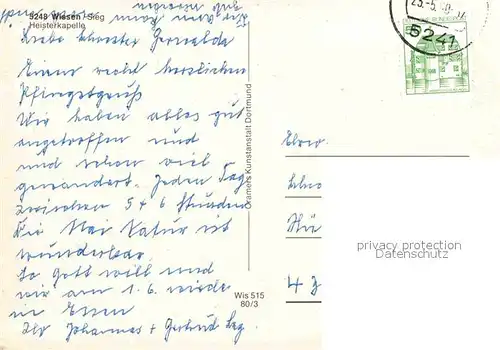 5248 Wissen / Sieg
Heisterkapelle
Liebe Schwester Gerwalda
Einen recht herzlichen
Pfingstgruß
Wir haben alles gut
angetroffen und
und schon viel
gewandert. Jeden Tag
zwischen 5 + 6 Stunden
Die Mai Natur ist
wunderbar.
So Gott will sind
wir am 1.6. wieder
in Essen
Ihr Johannes + Gertrud
Cramers Kunstanstalt Dortmund
Wis 515
80/3
5241
Ehrw.
43
privacy protection
Datenschutz